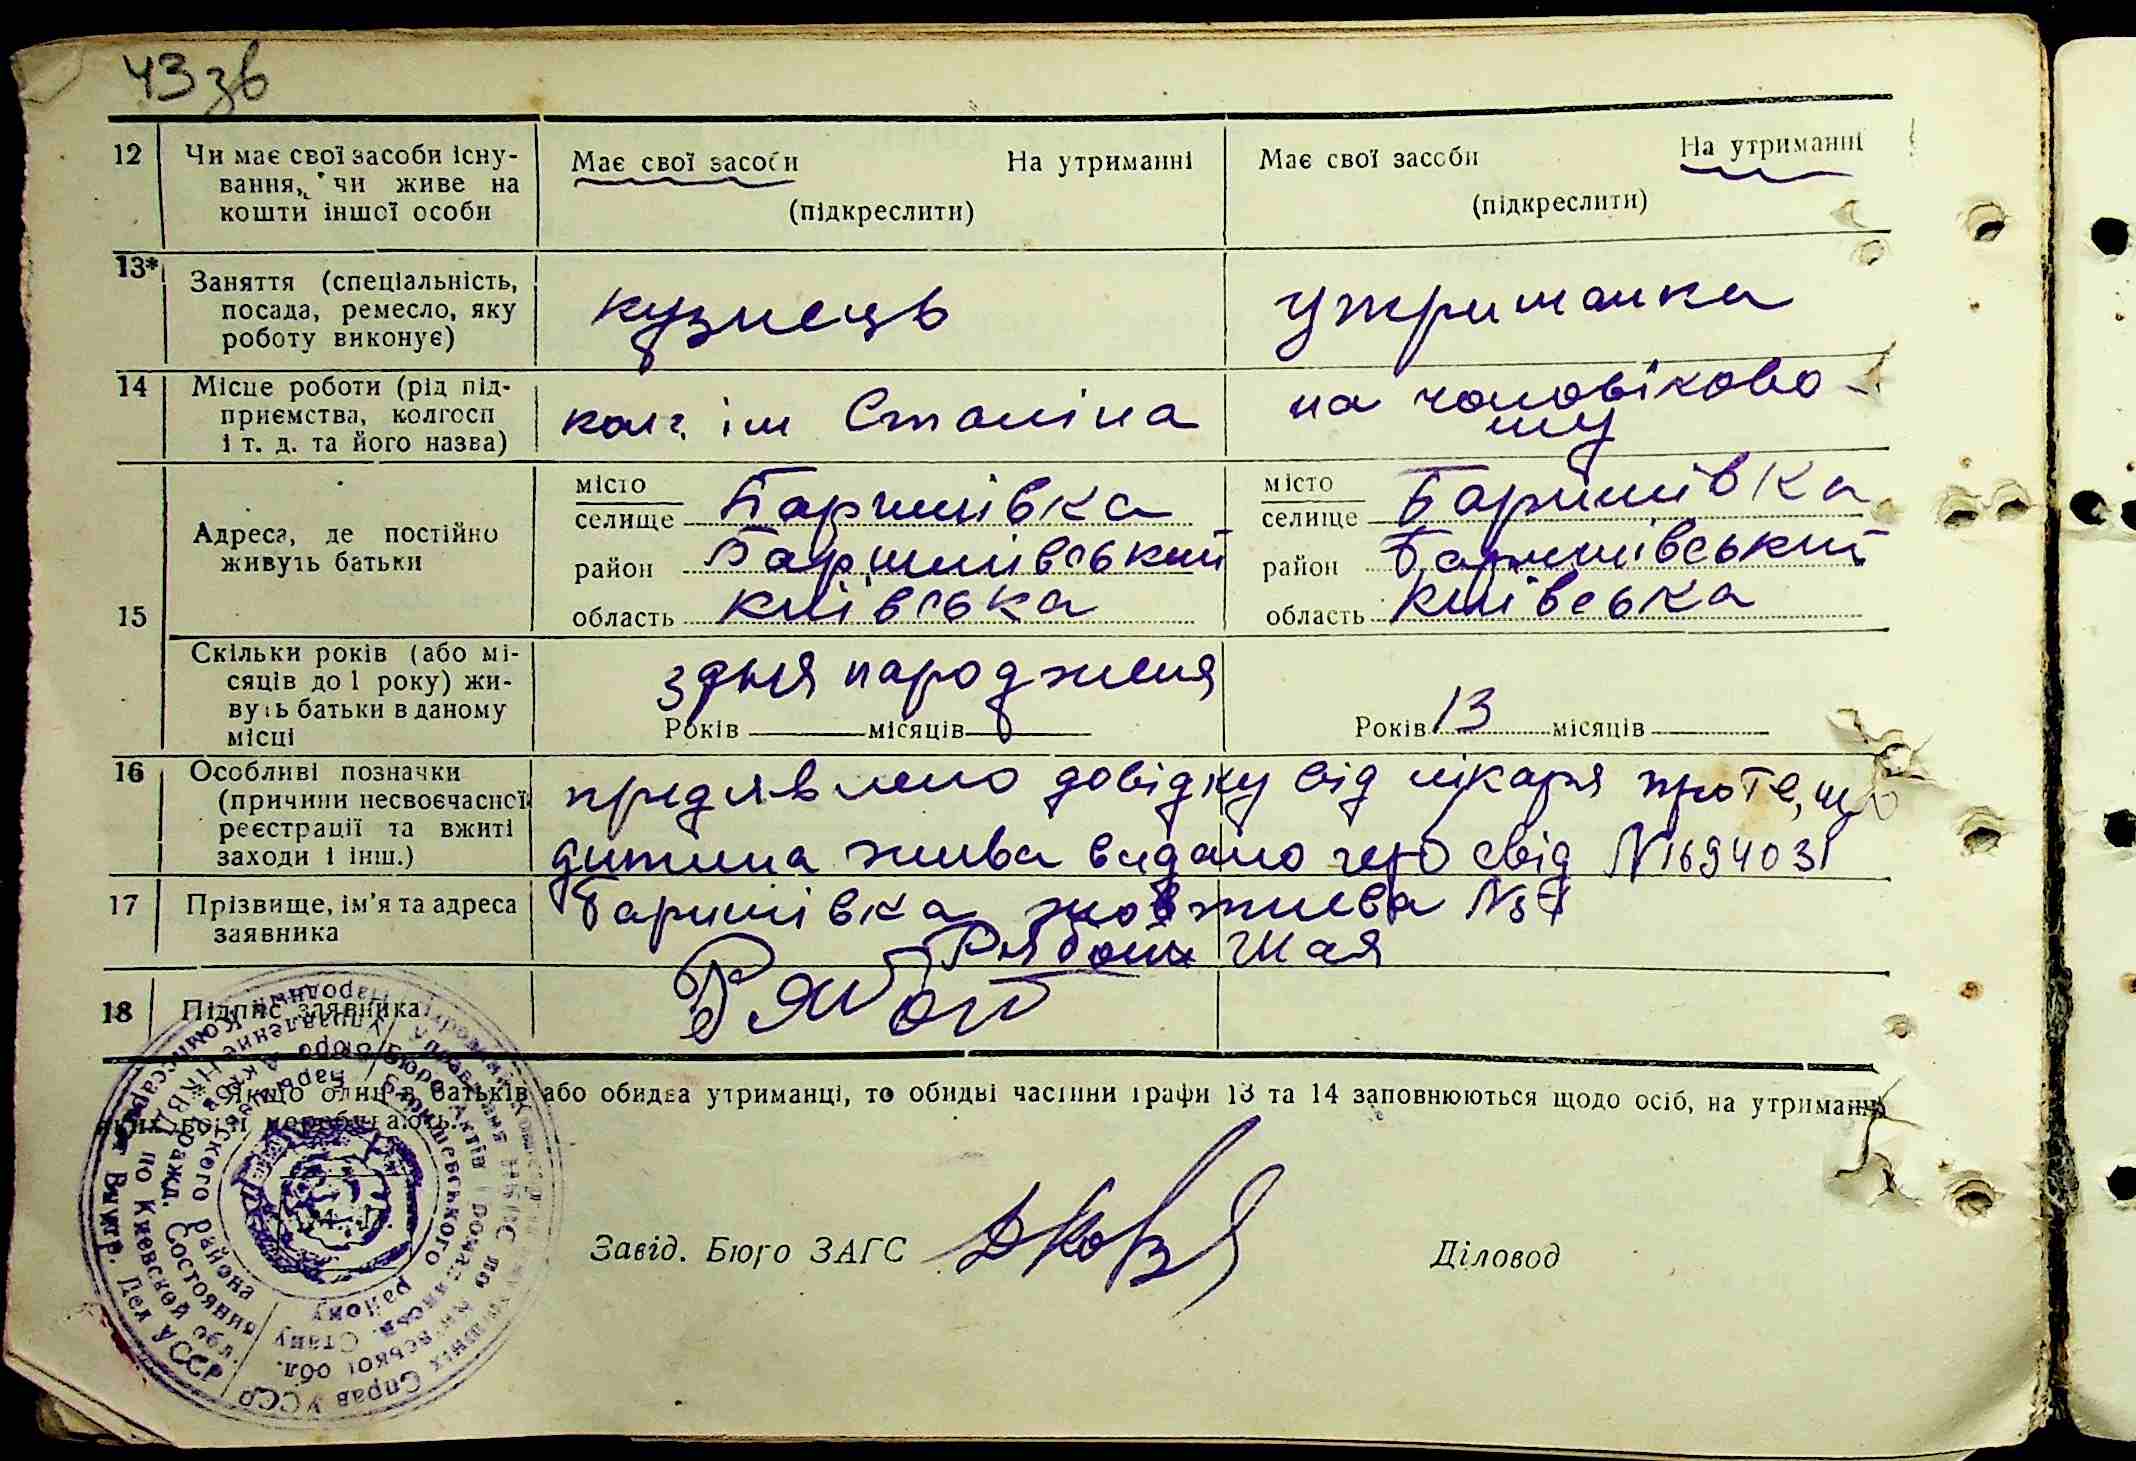 43 зв
12 Чи має свої засоби існу-
вання, чи живе на
кошти іншої особи
Має свої засоби На утриманні
(підкреслити)
Має свої засоби На утриманні
(підкреслити)
13* Заняття (спеціальність,
посада, ремесло, яку
роботу виконує)
кузнець
утриманка
14 Місце роботи (рід під-
приємства, колгосп
і т. д. та його назва)
колг. ім Сталіна
на чоловіково-
му
15
Адреса, де постійно
живуть батьки
місто
селище Баришівка
район Баришивський
область Київська
місто
селище Баришівка
район Баришівський
область Київська
Скільки років (або мі-
сяців до 1 року) жи-
вуть батьки в даному
місці
з дня народженя
Років місяців
Років 13 місяців
16 Особливі позначки
(причини несвоєчасної
реєстрації та вжиті
заходи і інш.)
предявлено довідку від лікаря про те, що
дитина жива видано свід N 1694031
17 Прізвище, ім'я та адреса
заявника
Баришівка
18 Підпис заявника
Якщо один з батьків або обидва утриманці, то обидві частини графи 13 та 14 заповнюються щодо осіб, на утриманні
яких вони перебувають.
Завід. Бюро ЗАГС
Діловод
Народный Комиссариат Внутр. Дел УССР
Управление НКВД по Киевской обл.
Бюро Актов Гражд. Состояния
Барышевского района
Народний Комісаріат Внутрішніх Справ УССР
Управління НКВС по Київської обл.
Бюро Актів Громадянськ. Стану
Баришевського району